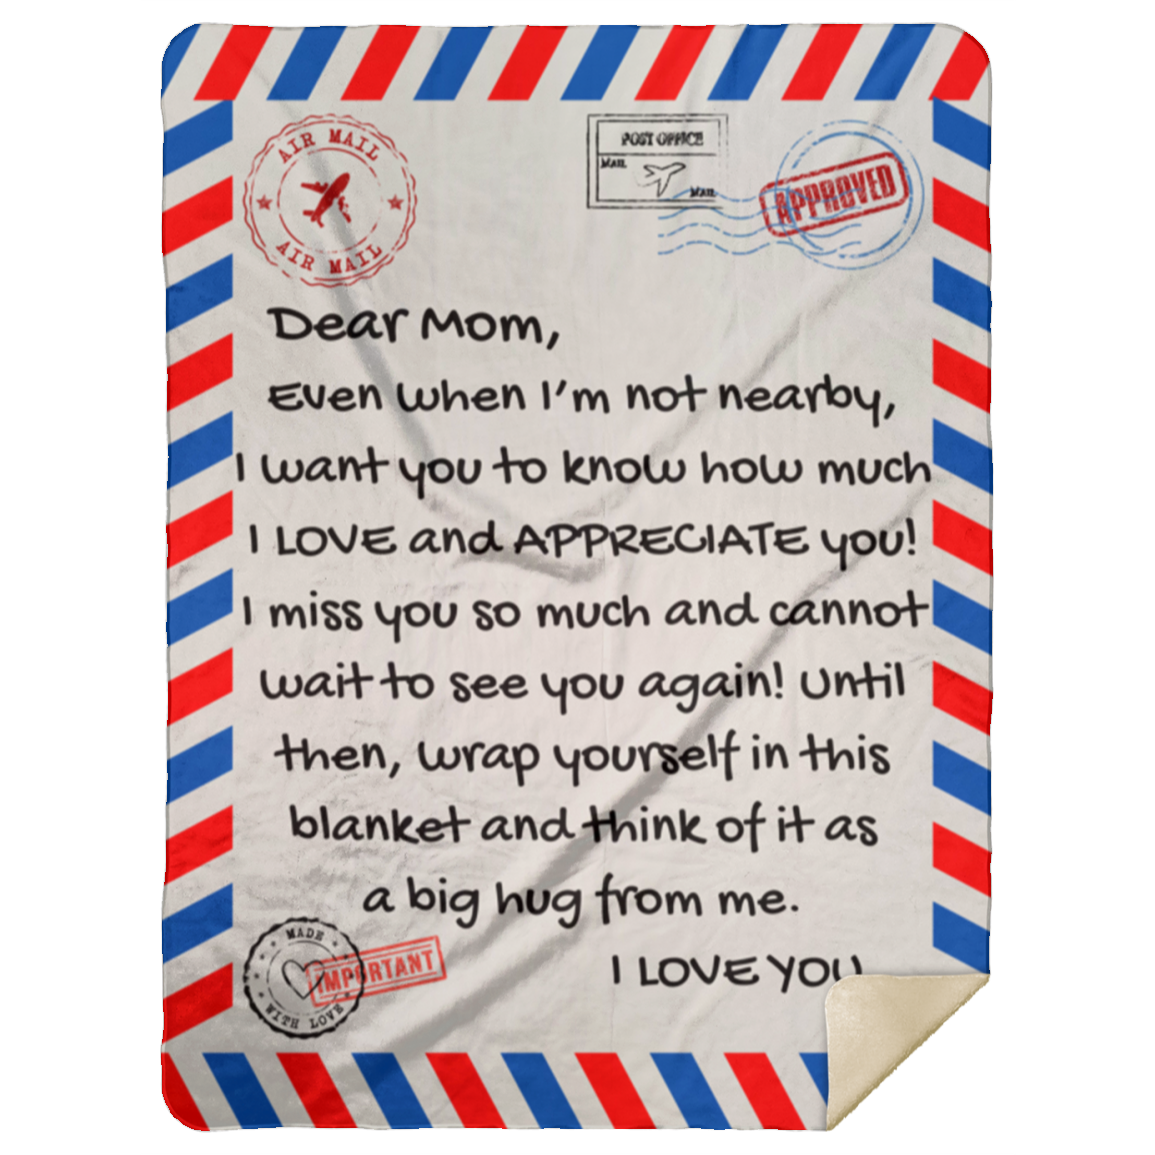 AIR MAIL
AIR MAIL
POST OFFICE
MAIL
MAIL
APPROVED
Dear Mom,
Even when I'm not nearby,
I want you to know how much
I LOVE and APPRECIATE you!
I miss you so much and cannot
wait to see you again! Until
then, wrap yourself in this
blanket and think of it as
a big hug from me.
I LOVE YOU
MADE
WITH LOVE
IMPORTANT